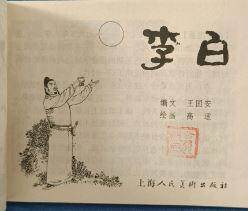 李白
编文 王国安
绘画 高适
上海人民美术出版社